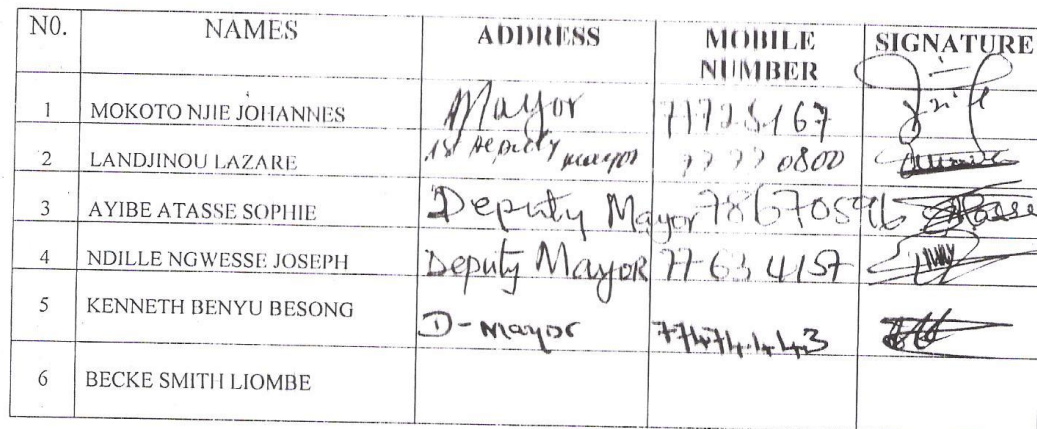 N0. NAMES ADDRESS MOBILE NUMBER SIGNATURE
1 MOKOTO NJIE JOHANNES Mayor 77725167
2 LANDJINOU LAZARE 1st Deputy mayor 77770800
3 AYIBE ATASSE SOPHIE Deputy Mayor 78670596
4 NDILLE NGWESSE JOSEPH Deputy Mayor 77634157
5 KENNETH BENYU BESONG D-Mayor
6 BECKE SMITH LIOMBE